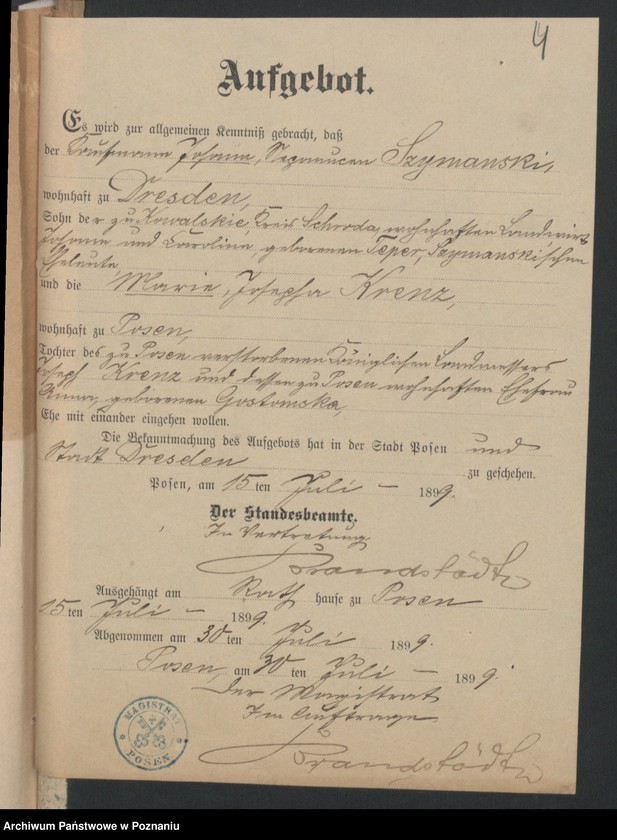 4
Aufgebot.
Es wird zur allgemeinen Kenntniß gebracht, daß
der Kaufmann Johann, Nepomucen Szymanski,
wohnhaft zu Dresden,
Sohn der zu Kowalskie, Kreis Schroda, wohnhaften Landwirt
Johann und Caroline, geborenen Teper, Szymanski'schen
Eheleute
und die Marie, Josepha Krenz,
wohnhaft zu Posen,
Tochter des zu Posen verstorbenen Königlichen Landmessers
Joseph Krenz und dessen zu Posen wohnhaften Ehefrau
Anna, geborenen Gostomska,
Ehe mit einander eingehen wollen.
Die Bekanntmachung des Aufgebots hat in der Stadt Posen und
Stadt Dresden zu geschehen.
Posen, am 15 ten Juli – 1899.
Der Standesbeamte.
In Vertretung
Brandstädt
Ausgehängt am Rath hause zu Posen
15 ten Juli – 1899.
Abgenommen am 30 ten Juli 1899.
Posen, am 30 ten Juli – 1899.
Der Magistrat
Im Auftrage
Brandstädt
MAGISTRAT
POSEN
Archiwum Państwowe w Poznaniu